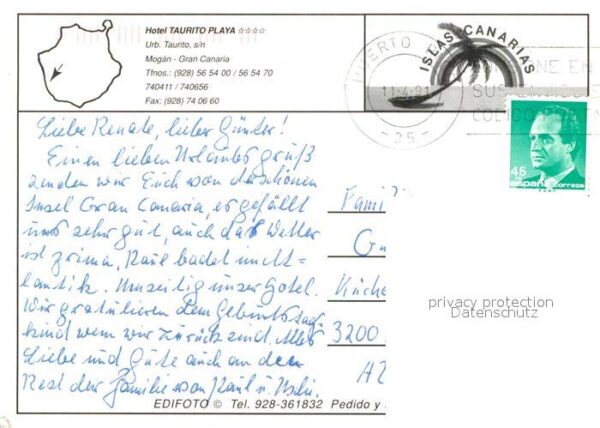 Hotel TAURITO PLAYA ☆☆☆☆
Urb. Taurito, s/n
Mogán - Gran Canaria
Tfnos.: (928) 56 54 00 / 56 54 70
740411 / 740656
Fax: (928) 74 06 60
ISLAS CANARIAS
PUERTO
11-4-91
-35-
NE EN
SUS
CODIGO
45
españa correos
Liebe Renate, lieber Günter!
Einen lieben Urlaubsgruß
senden wir Euch von der schönen
Insel Gran Canaria, es gefällt
uns sehr gut, auch das Wetter
ist prima, Paul badet im Atlantik.
Umseitig unser Hotel.
Wir gratulieren dem Geburtstagskind
wenn wir zurück sind. Alles
Liebe und Gute auch an den
Rest der Familie von Paul u. Uschi.
Famili
Gu
Küche
3200
privacy protection
Datenschutz
EDIFOTO © Tel. 928-361832 Pedido y